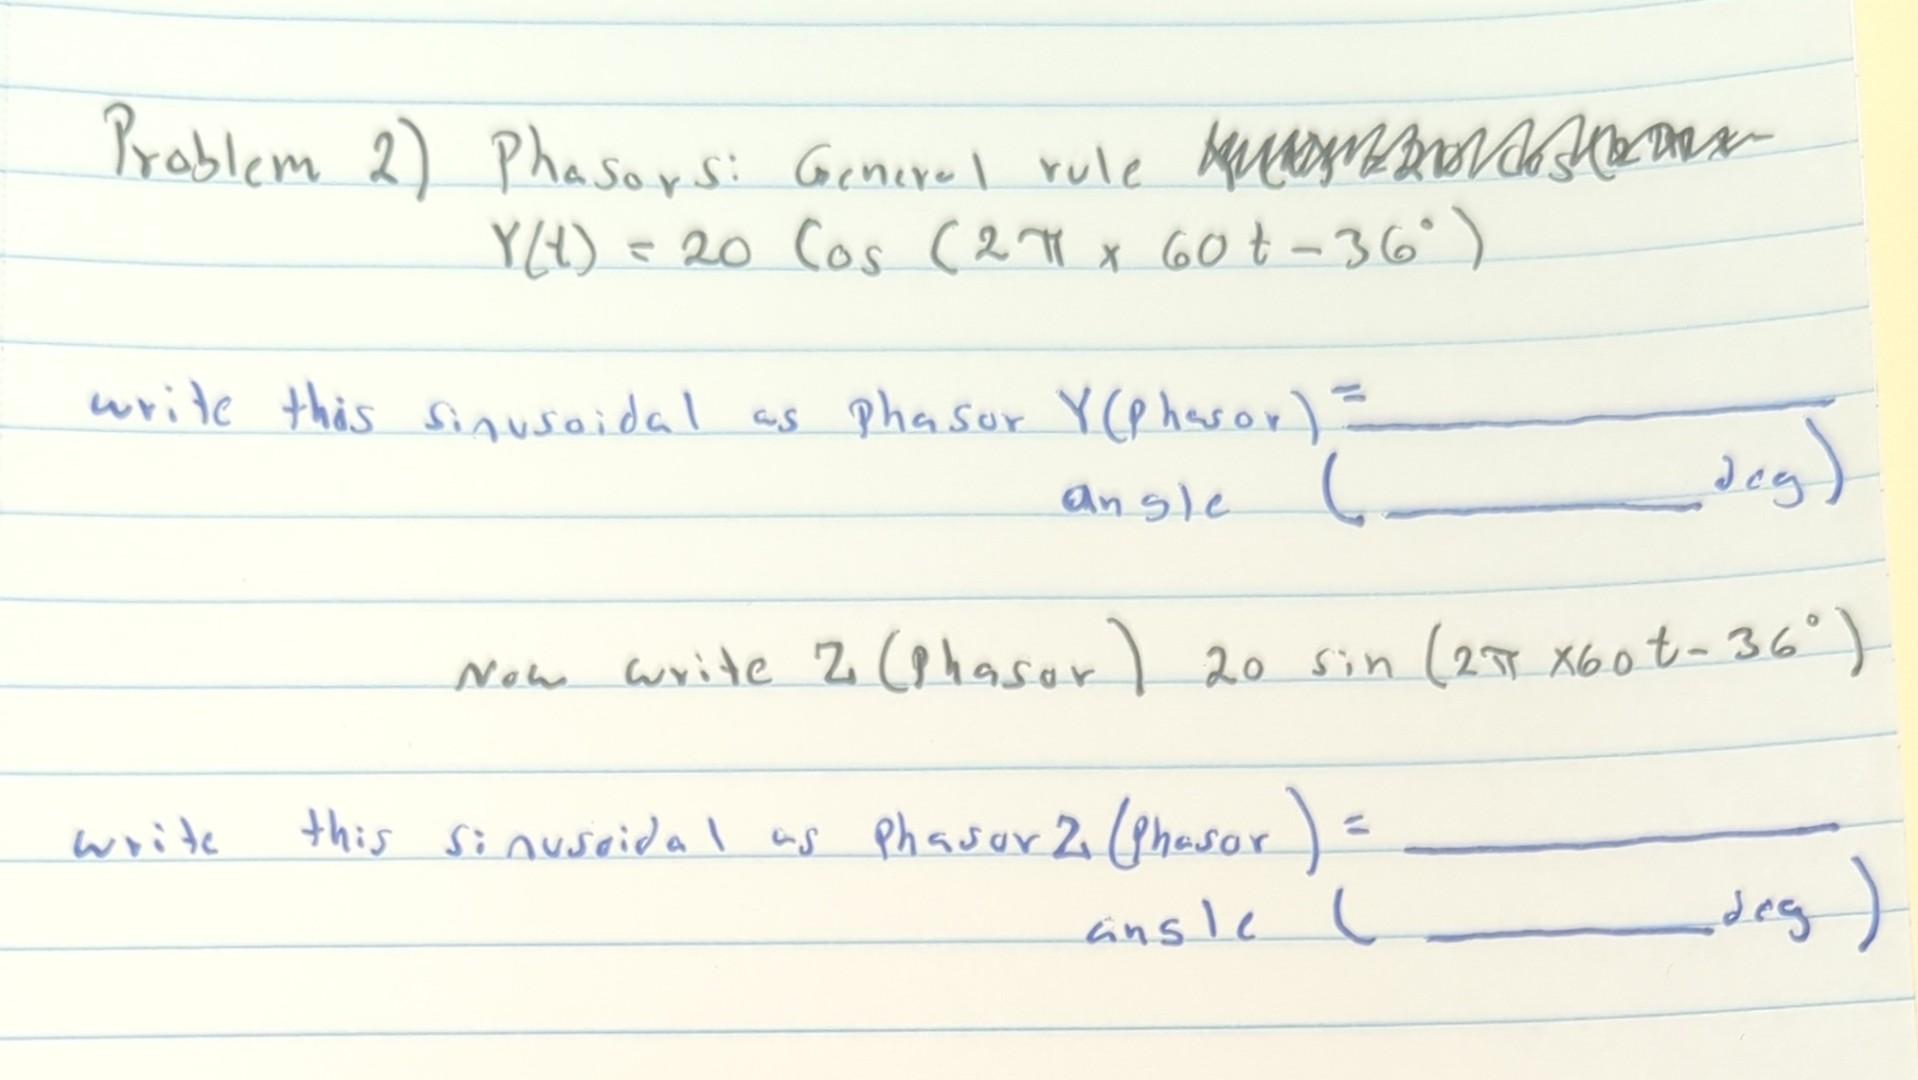 Problem 2) Phasors: General rule
Y(t) = 20 Cos (2π x 60t - 36°)
write this sinusoidal as phasor Y(phasor) = ________
angle ( ________ deg)
Now write Z (Phasor) 20 sin (2π x60t - 36°)
write this sinusoidal as phasor Z (Phasor) = ________
angle ( ________ deg)